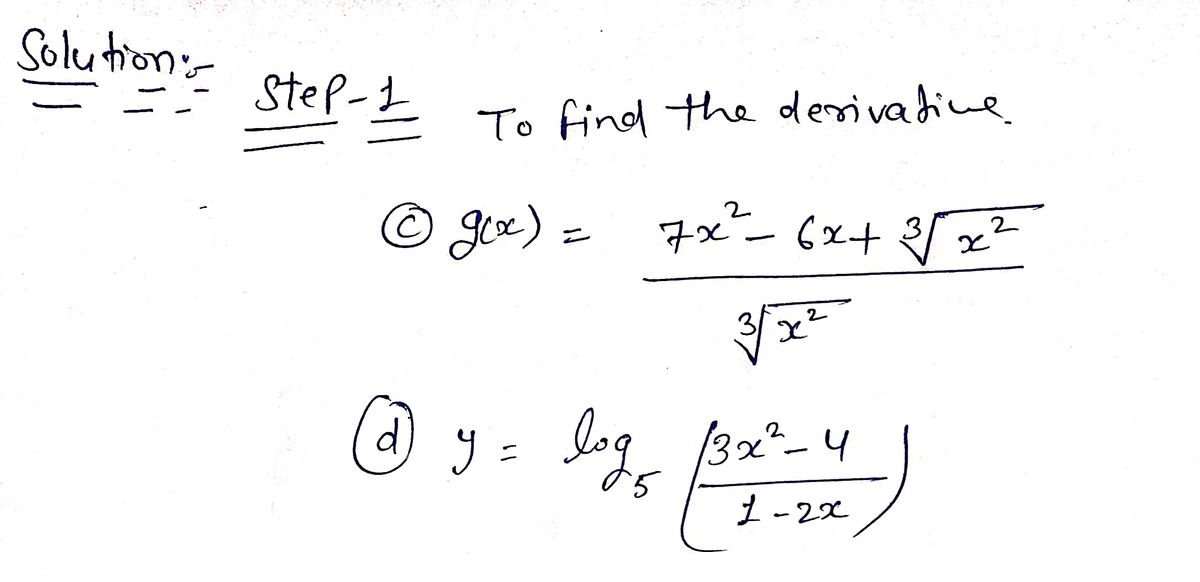 Solution:-
Step-1 To find the derivative.
ⓒ g(x) = 7x² - 6x + ∛x²
∛x²
ⓓ y = log₅ (3x² - 4
1 - 2x)